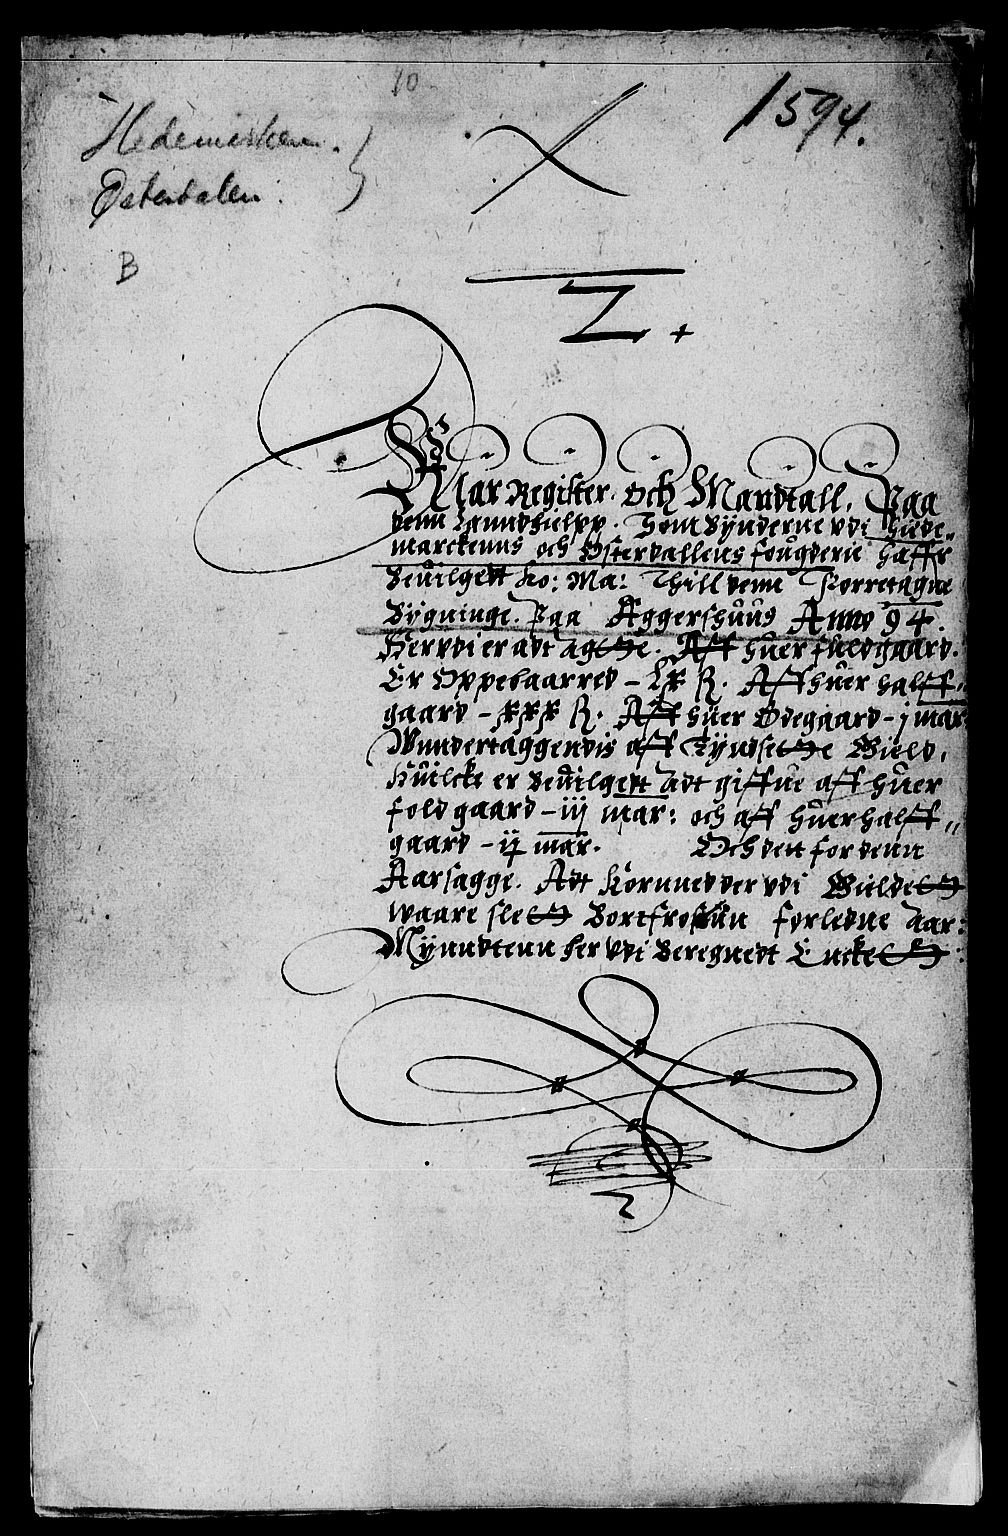 10
1594.
Hedemarken.
Østerdalen.
B
Z +
Klar Register och Mandtall, Paa
denn Lanndhielpp. Som Bÿnderne vdi Hede„
marckenns och Østerdallens fougderie haffr
Beuilgedt Ko: Ma: Thill denn Forretagne
Bÿgninge. Paa Aggershuus Anno 94.
Herudi er adt agte. Aff huer fuldgaard.
Er Oppebaarred – Lx ß. Aff huer halff„
gaard – xxx ß. Aff huer Ødegaard – j mar
Wundertaggendis aff Tÿndsette Gield.
Huilcke er Beuilgedt adt giffue aff huer
foldgaard – iij mar: och aff huer halff„
gaard – ij mar. Och det for denn
Aarsagge. Adt Kornned der vdi Gieldett
waare slett Bortfrossun forledne Aar:
Mÿnndtenn her vdi Beregnedt Enckett: